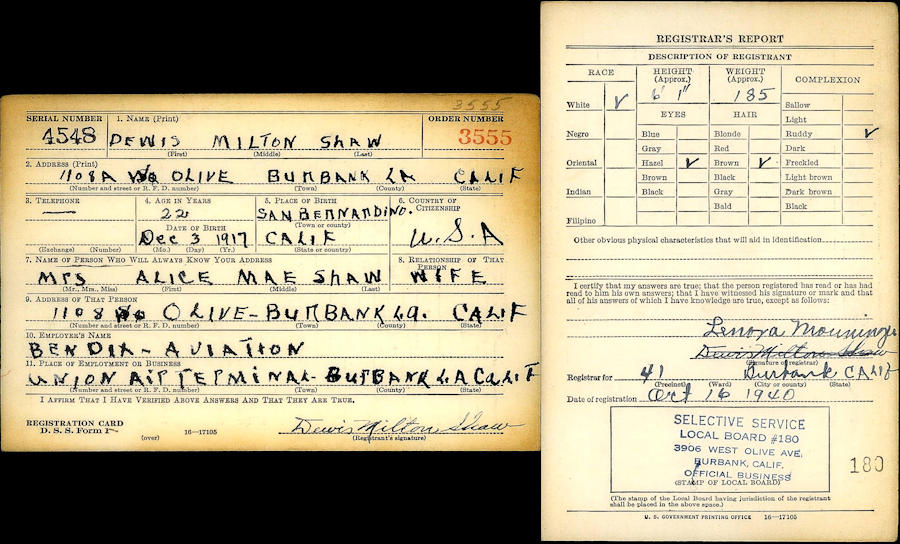 3555
SERIAL NUMBER 1. NAME (Print) ORDER NUMBER
4548 DEWIS MILTON SHAW 3555
(First) (Middle) (Last)
2. ADDRESS (Print)
1108A W OLIVE BURBANK LA CALIF
(Number and street or R. F. D. number) (Town) (County) (State)
3. TELEPHONE 4. AGE IN YEARS 5. PLACE OF BIRTH 6. COUNTRY OF CITIZENSHIP
— 22 SAN BERNARDINO.
(Town or county)
DATE OF BIRTH
Dec 3 1917 CALIF U.S.A
(Exchange) (Number) (Mo.) (Day) (Yr.) (State or country)
7. NAME OF PERSON WHO WILL ALWAYS KNOW YOUR ADDRESS 8. RELATIONSHIP OF THAT PERSON
Mrs ALICE MAE SHAW WIFE
(Mr., Mrs., Miss) (First) (Middle) (Last)
9. ADDRESS OF THAT PERSON
1108 OLIVE - BURBANK LA. CALIF
(Number and street or R. F. D. number) (Town) (County) (State)
10. EMPLOYER'S NAME
BENDIX - AVIATION
11. PLACE OF EMPLOYMENT OR BUSINESS
UNION AIR TERMINAL - BURBANK LA CALIF
(Number and street or R. F. D. number) (Town) (County) (State)
I AFFIRM THAT I HAVE VERIFIED ABOVE ANSWERS AND THAT THEY ARE TRUE.
REGISTRATION CARD
D. S. S. Form 1
(over) 16—17105
Dewis Milton Shaw
(Registrant's signature)
REGISTRAR'S REPORT
DESCRIPTION OF REGISTRANT
RACE HEIGHT (Approx.) WEIGHT (Approx.) COMPLEXION
White ✓ 6' 1" 185 Sallow
EYES HAIR Light
Negro Blue Blonde Ruddy ✓
Gray Red Dark
Oriental Hazel ✓ Brown ✓ Freckled
Brown Black Light brown
Indian Black Gray Dark brown
Bald Black
Filipino
Other obvious physical characteristics that will aid in identification
I certify that my answers are true; that the person registered has read or has had
read to him his own answers; that I have witnessed his signature or mark and that
all of his answers of which I have knowledge are true, except as follows:
Lenora
Dewis Milton Shaw
(Signature of registrar)
Registrar for 41 Burbank CALIF
(Precinct) (Ward) (City or county) (State)
Date of registration Oct 16 1940
SELECTIVE SERVICE
LOCAL BOARD #180
3906 WEST OLIVE AVE,
BURBANK, CALIF.
OFFICIAL BUSINESS
(STAMP OF LOCAL BOARD)
180
(The stamp of the Local Board having jurisdiction of the registrant
shall be placed in the above space.)
U. S. GOVERNMENT PRINTING OFFICE 16—17105